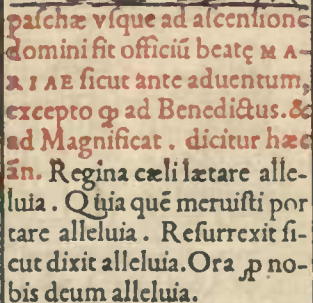 paſchæ vſque ad aſcenſione
domini fit officiū beatę MA-
RIAE ſicut ante aduentum,
excepto ꝙ ad Benedictus. &
ad Magnificat . dicitur hæc
ān. Regina cæli lætare alle-
luia . Quia quē meruiſti por
tare alleluia . Reſurrexit ſi-
cut dixit alleluia. Ora ꝓ no-
bis deum alleluia.